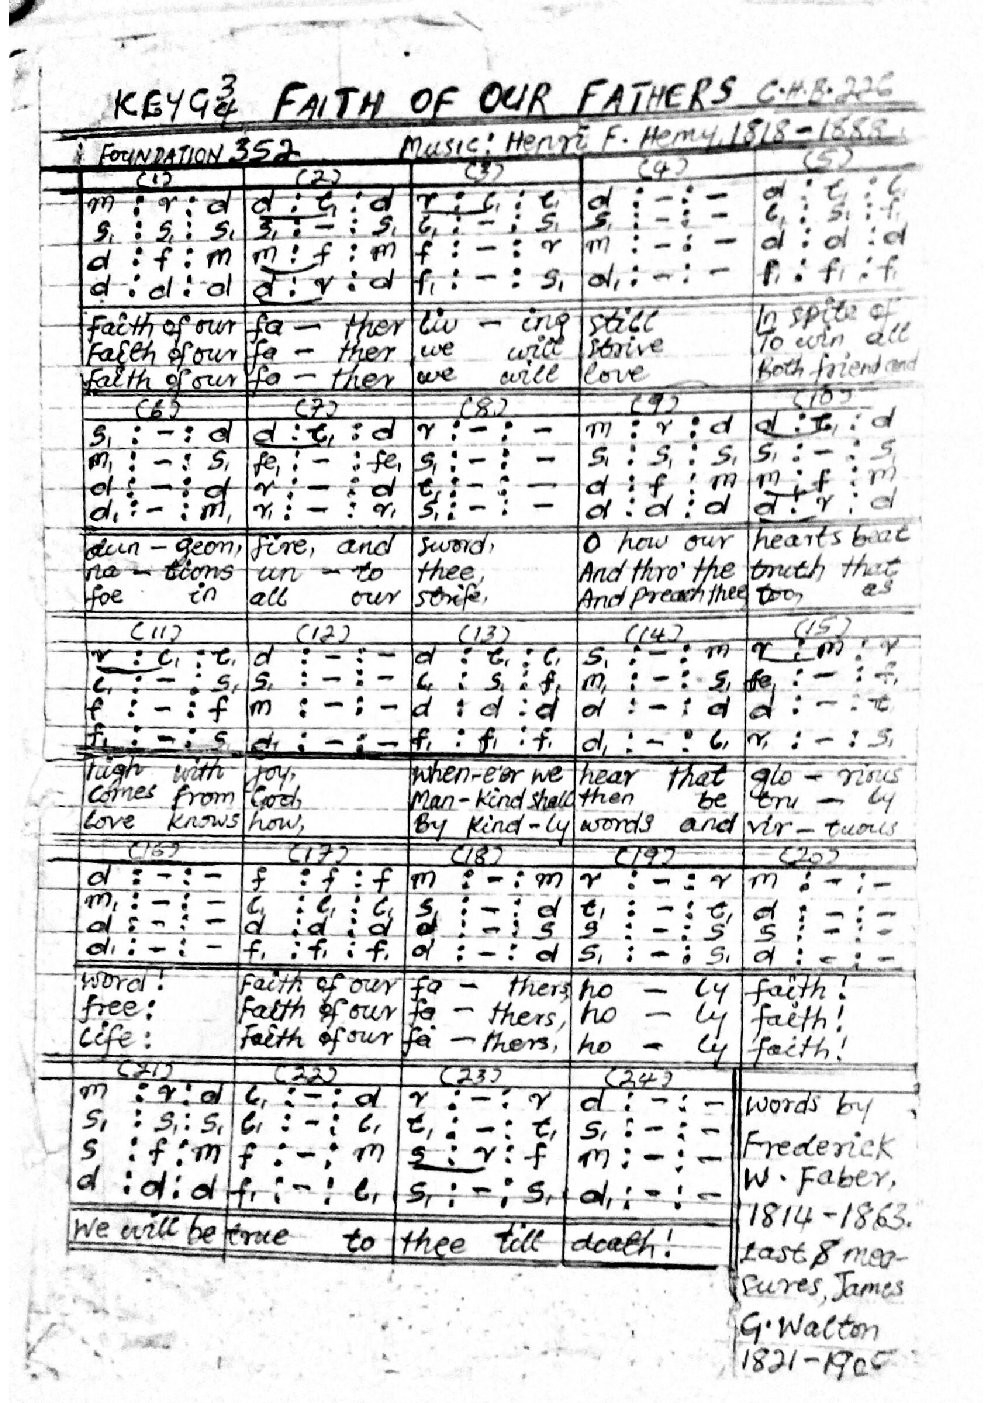 KEY G 3/4 FAITH OF OUR FATHERS C.H.B. 226
FOUNDATION 352 Music: Henri F. Hemy, 1818-1888.
(1) (2) (3) (4) (5)
m : r : d | d : t₁ : d | r : l₁ : t₁ | d : - : - | d : t₁ : l₁
s₁ : s₁ : s₁ | s₁ : - : s₁ | l₁ : - : s₁ | s₁ : - : - | l₁ : s₁ : f₁
d : f : m | m : f : m | f : - : r | m : - : - | d : d : d
d : d : d | d : r : d | f₁ : - : s₁ | d₁ : - : - | f₁ : f₁ : f₁
Faith of our | fa - ther | liv - ing | still | In spite of
Faith of our | fa - ther | we will | strive | To win all
Faith of our | fa - ther | we will | love | Both friend and
(6) (7) (8) (9) (10)
s₁ : - : d | d : t₁ : d | r : - : - | m : r : d | d : t₁ : d
m₁ : - : s₁ | fe₁ : - : fe₁ | s₁ : - : - | s₁ : s₁ : s₁ | s₁ : - : s₁
d : - : d | r : - : d | t₁ : - : - | d : f : m | m : f : m
d₁ : - : m₁ | r₁ : - : r₁ | s₁ : - : - | d : d : d | d : r : d
dun - geon, | fire, and | sword, | O how our | hearts beat
na - tions | un - to | thee, | And thro' the | truth that
foe in | all our | strife, | And preach thee | too, as
(11) (12) (13) (14) (15)
r : l₁ : t₁ | d : - : - | d : t₁ : l₁ | s₁ : - : m | r : m : r
l₁ : - : s₁ | s₁ : - : - | l₁ : s₁ : f₁ | m₁ : - : s₁ | fe₁ : - : f₁
f : - : f | m : - : - | d : d : d | d : - : d | d : - : t₁
f₁ : - : s₁ | d₁ : - : - | f₁ : f₁ : f₁ | d₁ : - : l₁ | r₁ : - : s₁
high with | joy, | when-e'er we | hear that | glo - rious
comes from | God, | Man-kind shall | then be | tru - ly
love knows | how, | By kind-ly | words and | vir - tuous
(16) (17) (18) (19) (20)
d : - : - | f : f : f | m : - : m | r : - : r | m : - : -
m₁ : - : - | l₁ : l₁ : l₁ | s₁ : - : d | t₁ : - : t₁ | d : - : -
d : - : - | d : d : d | d : - : s | s : - : s | s : - : -
d₁ : - : - | f₁ : f₁ : f₁ | d : - : d | s₁ : - : s₁ | d : - : -
word! | Faith of our | fa - thers, | ho - ly | faith!
free: | Faith of our | fa - thers, | ho - ly | faith!
life: | Faith of our | fa - thers, | ho - ly | faith!
(21) (22) (23) (24)
m : r : d | l₁ : - : d | r : - : r | d : - : -
s₁ : s₁ : s₁ | l₁ : - : l₁ | t₁ : - : t₁ | s₁ : - : -
s : f : m | f : - : m | s : r : f | m : - : -
d : d : d | f₁ : - : l₁ | s₁ : - : s₁ | d₁ : - : -
We will be | true to | thee till | death!
Words by
Frederick
W. Faber,
1814-1863.
Last 8 mea-
sures, James
G. Walton
1821-1905